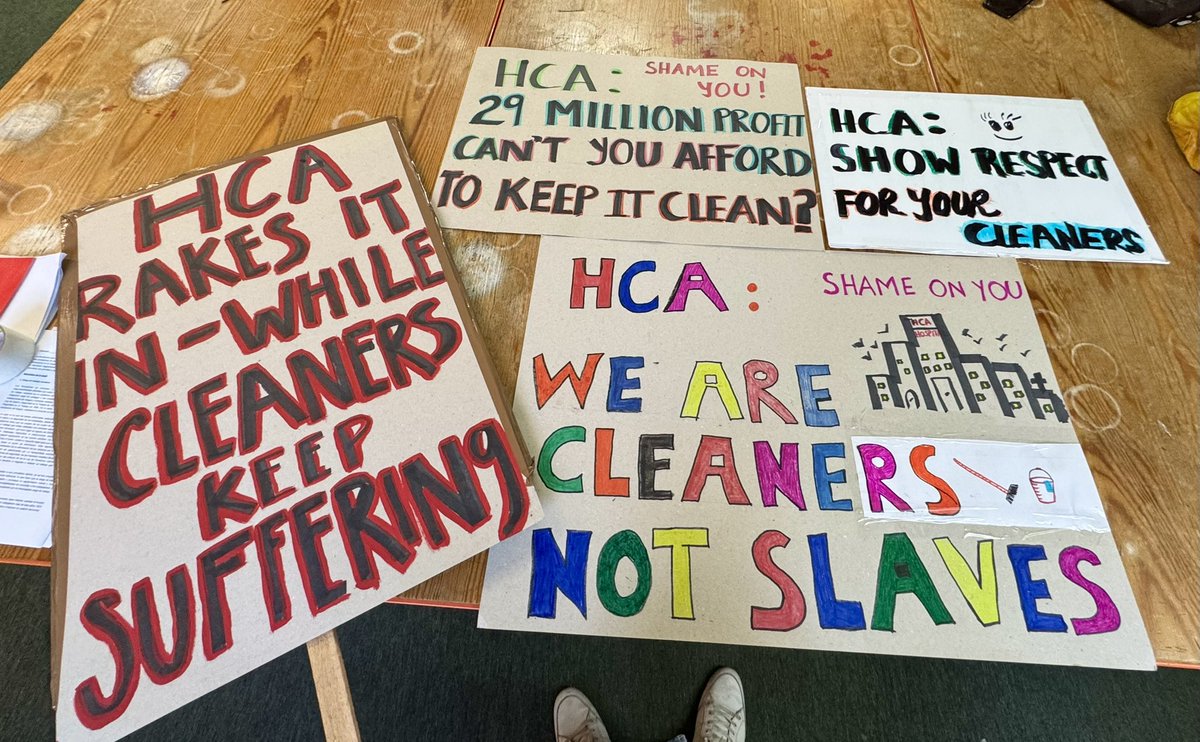 HCA
RAKES IT
IN-WHILE
CLEANERS
KEEP
SUFFERING
HCA: SHAME ON
YOU!
29 MILLION PROFIT
CAN'T YOU AFFORD
TO KEEP IT CLEAN?
HCA:
SHOW RESPECT
FOR YOUR
CLEANERS
HCA: SHAME ON YOU
HCA
WE ARE
CLEANERS
NOT SLAVES